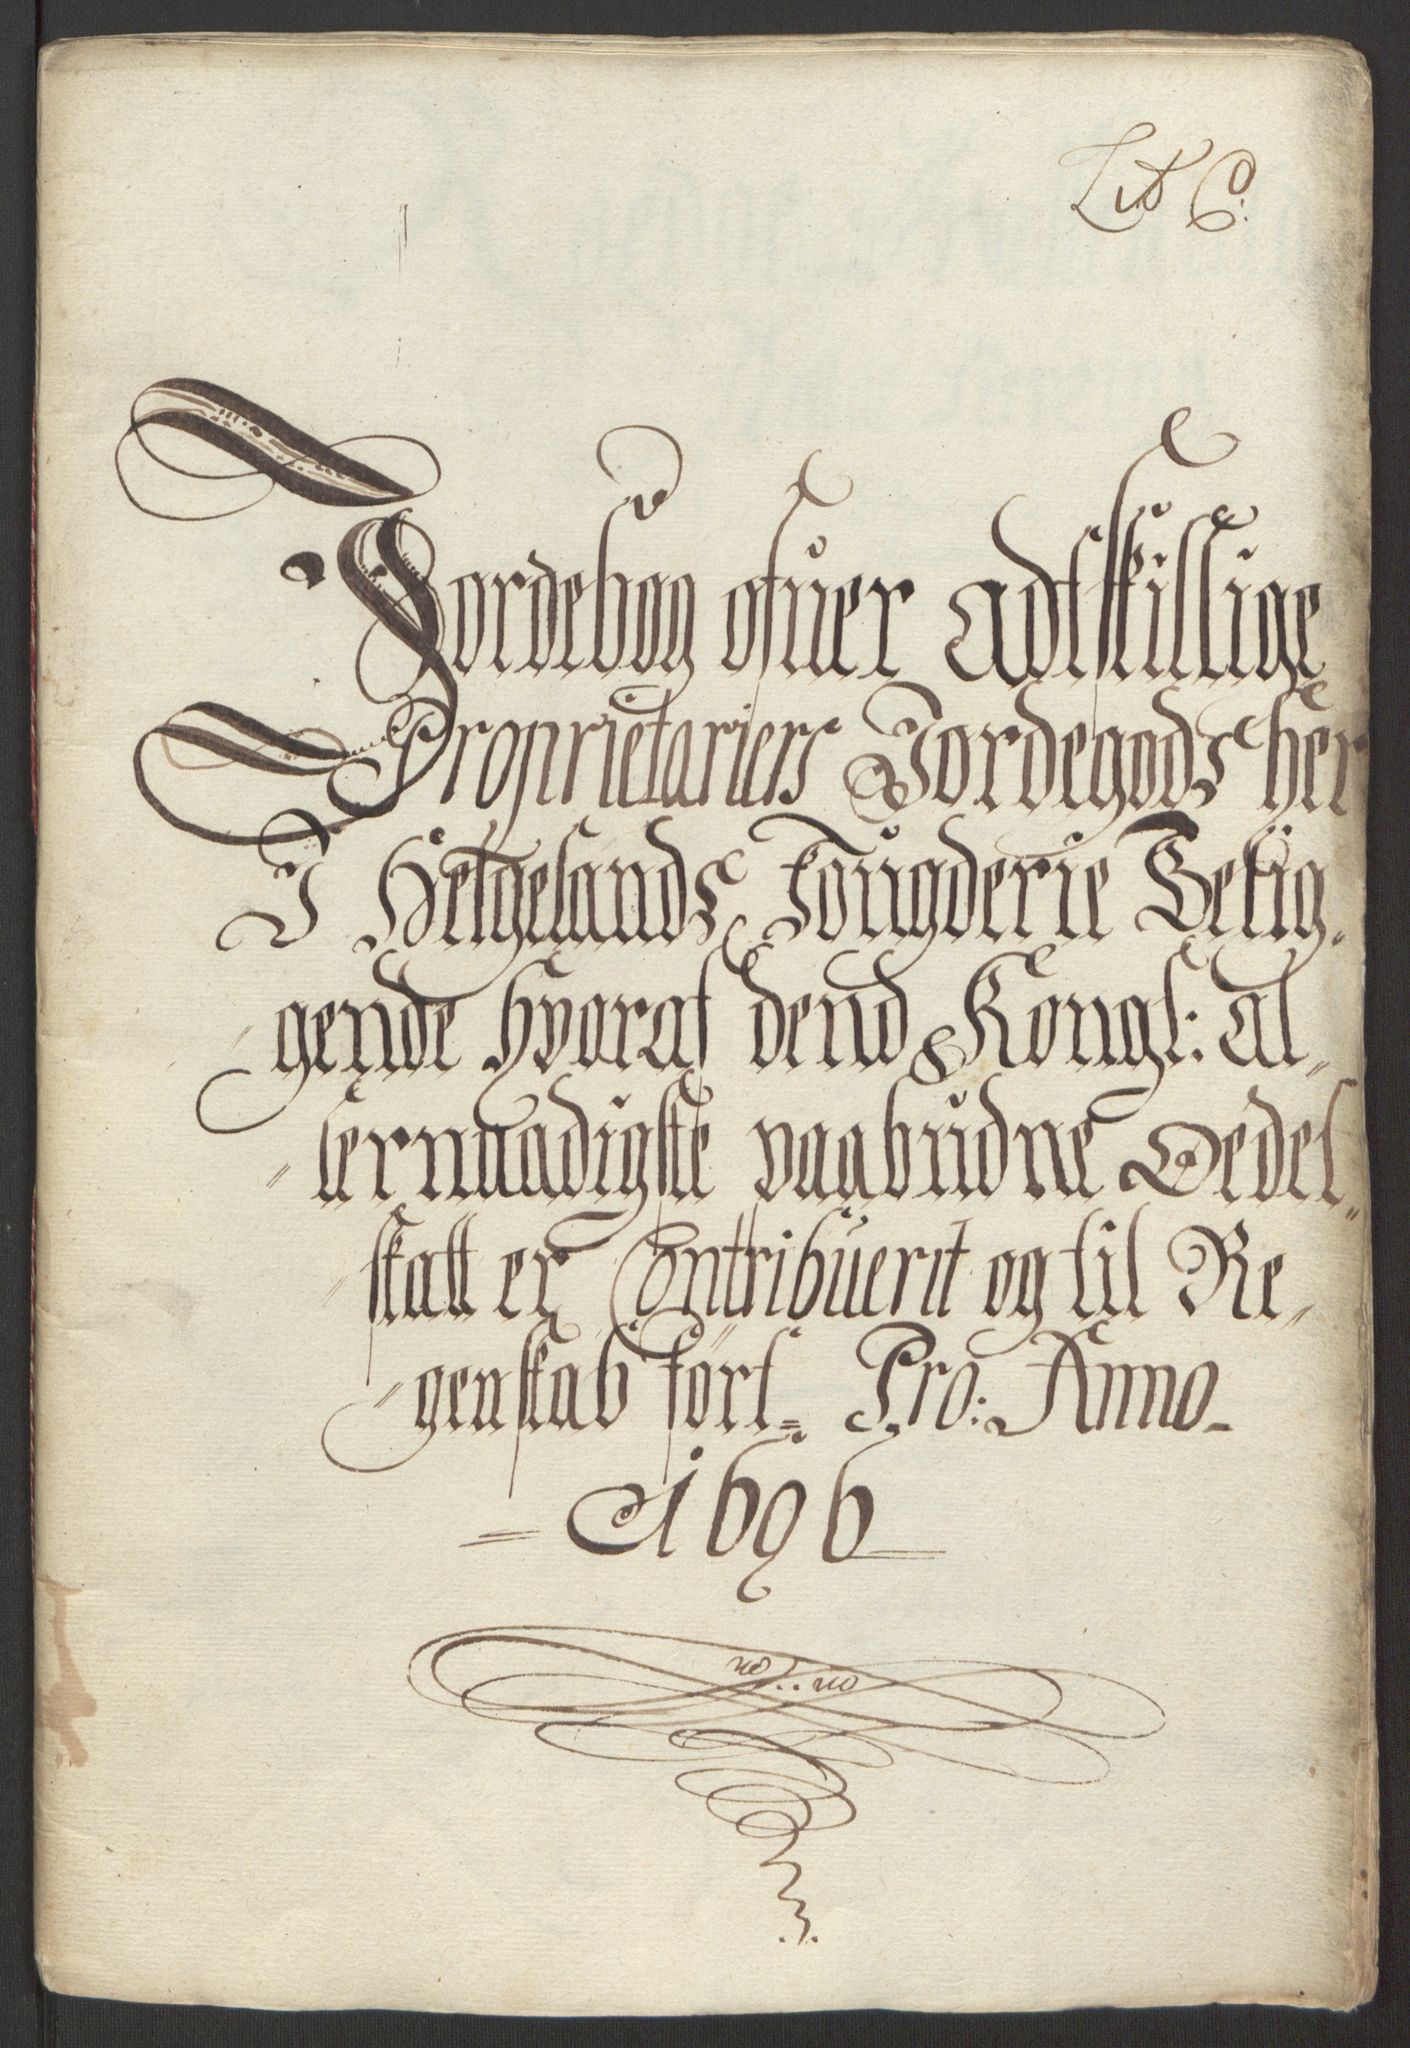 Lit C:
Jordebog ofuer Adtskillige
Proprietariers Jordegods her
I Helgelands Fougderie Belig-
gende hvoraf dend Kongl: Al-
lernaadigste paabudne Oedel-
skatt er Contribuerit og til Re-
genskab fört. Pro: Anno
1696